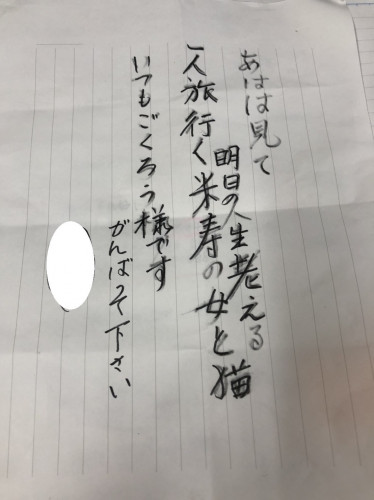 あはは見て
明日の人生考える
一人旅行く米寿の女と猫
いつもごくろう様です
がんばって下さい